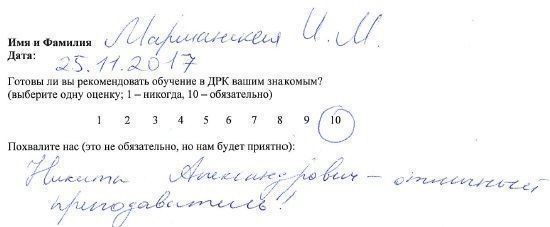 Имя и Фамилия Марманская И. М.
Дата: 25.11.2017
Готовы ли вы рекомендовать обучение в ДРК вашим знакомым?
(выберите одну оценку; 1 – никогда, 10 – обязательно)
1 2 3 4 5 6 7 8 9 10
Похвалите нас (это не обязательно, но нам будет приятно):
Никита Александрович – отличный
преподаватель!